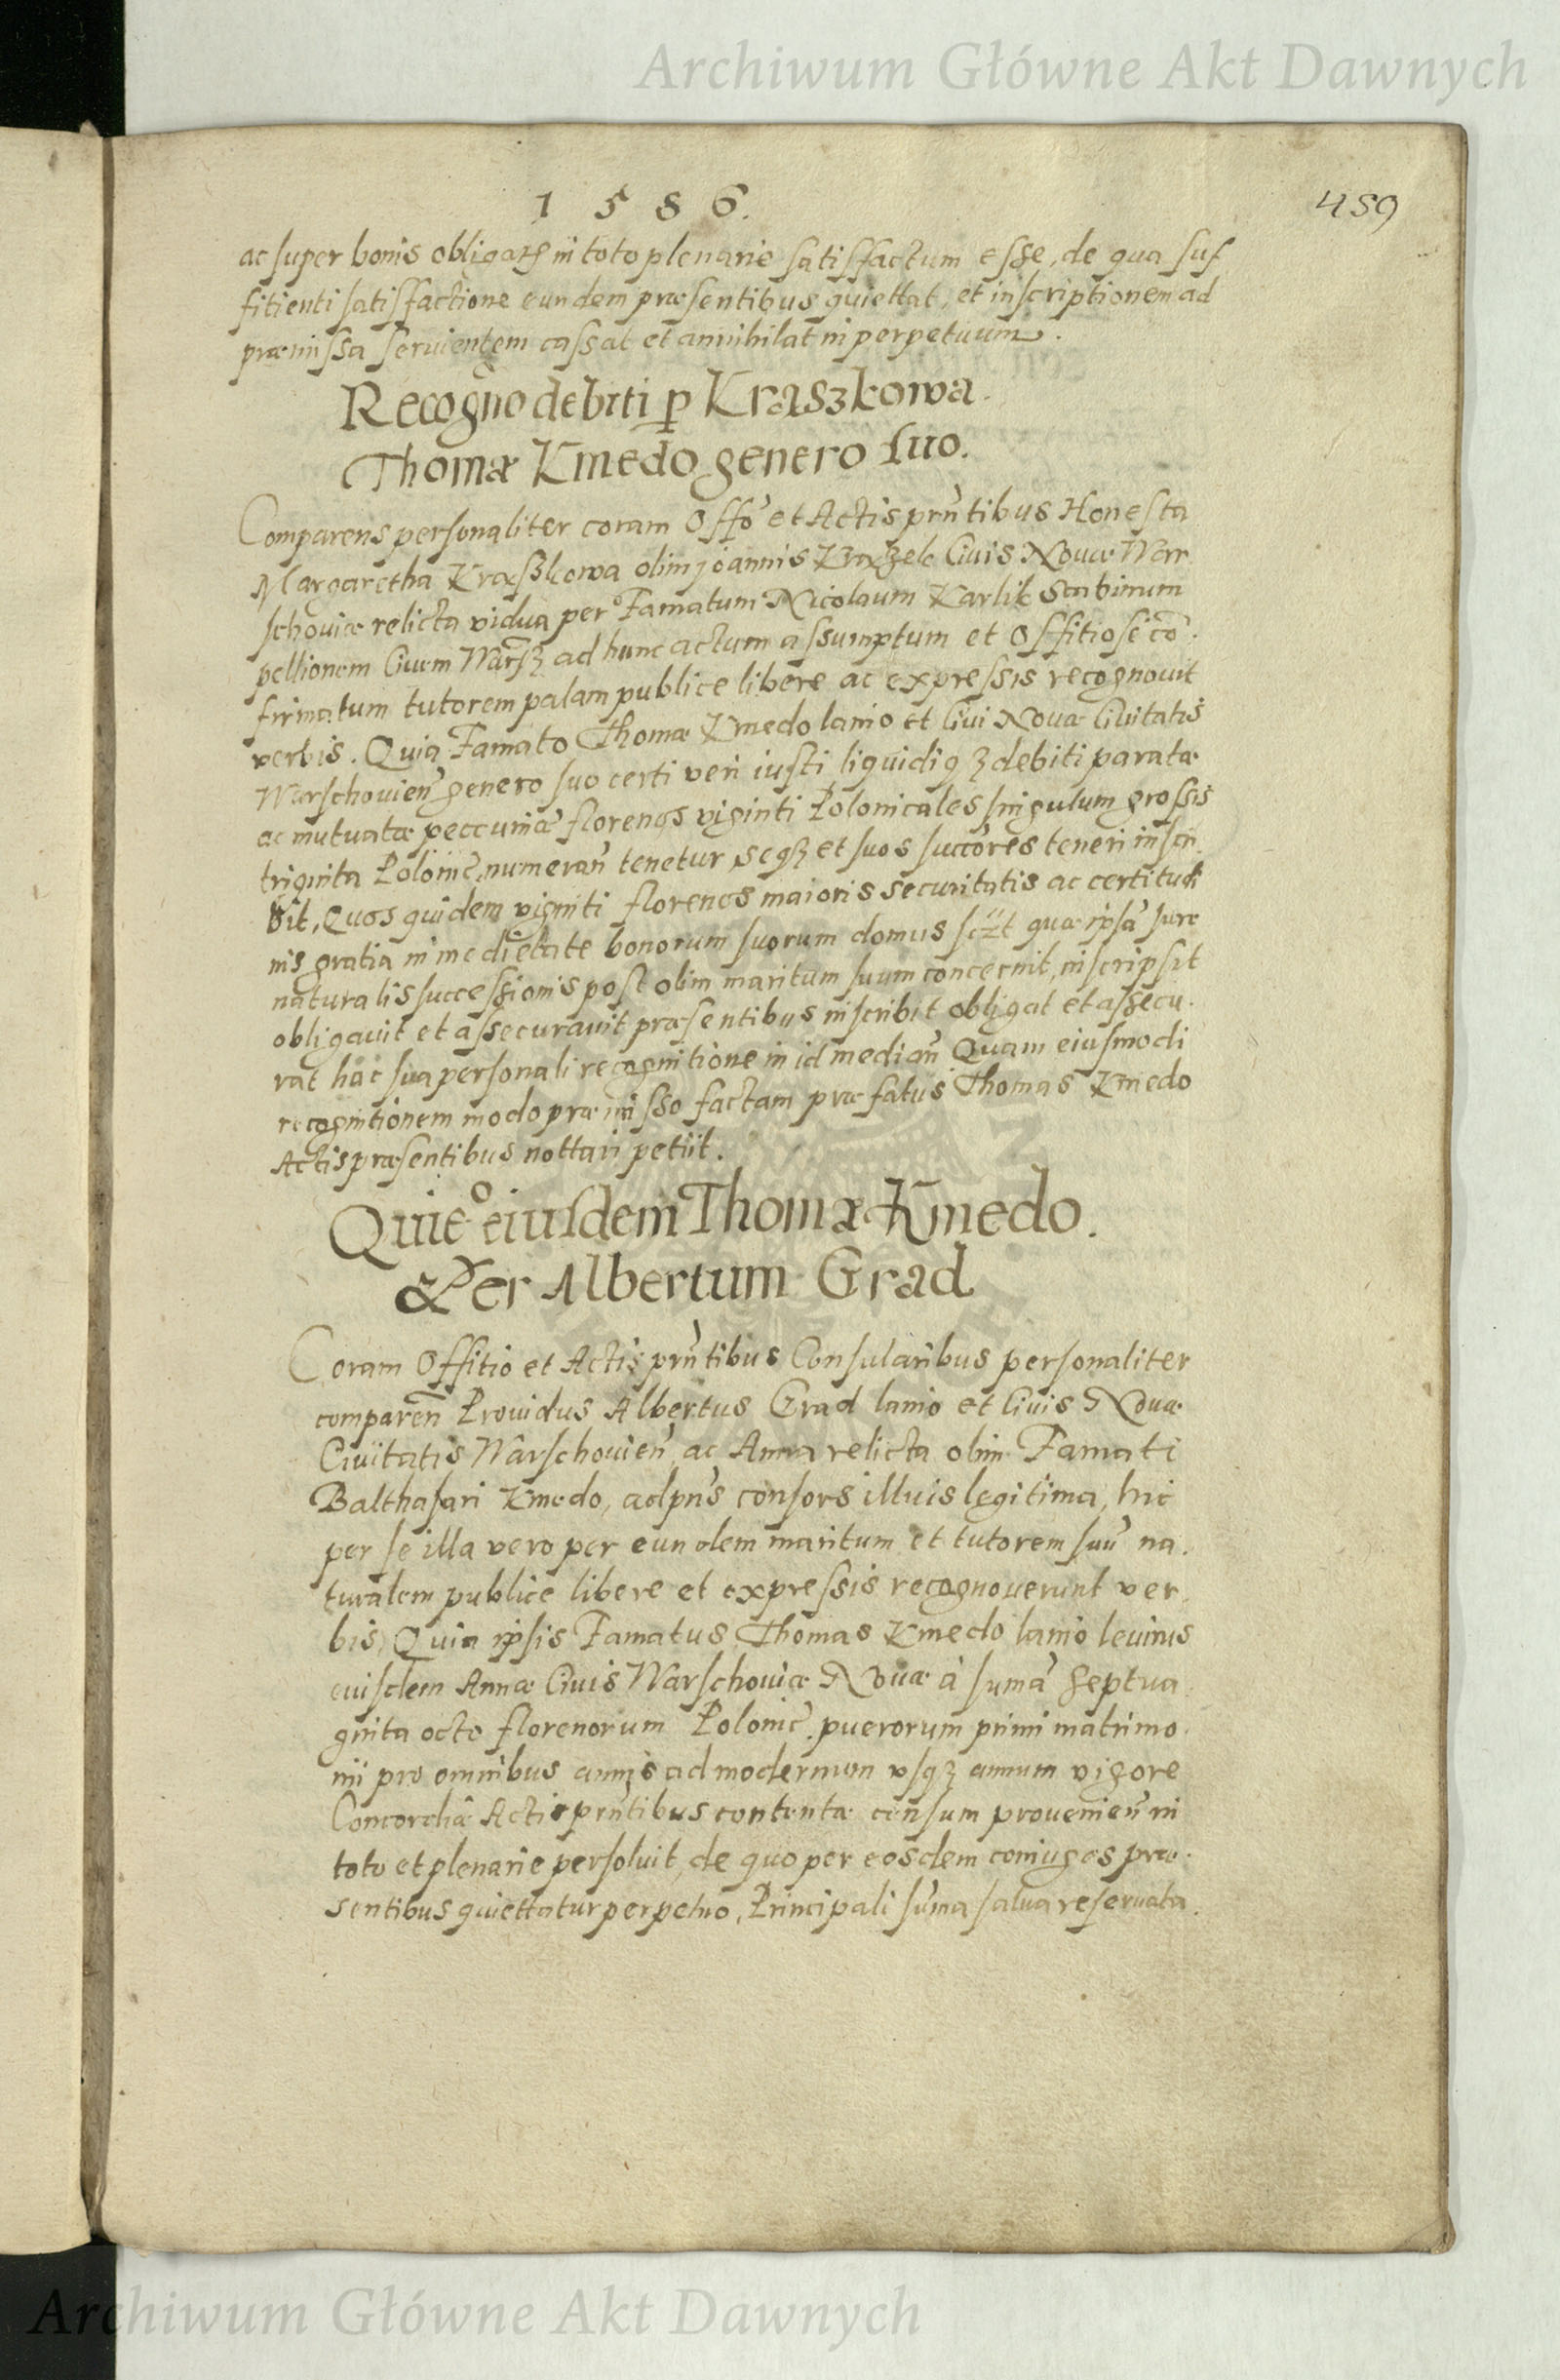 Archiwum Główne Akt Dawnych
1586.
459
ac super bonis obligatis in toto plenarie satisfactum esse, de qua suf
fitienti satisfactione eundem præsentibus quiettat, et inscriptionem ad
præmissa seruientem cassat et annihilat in perpetuum.
Recogño debiti p Kraszkowa.
Thomæ Kmedo genero suo.
Comparens personaliter coram Offo et Actis prñtibus Honesta
Margaretha Kraszkowa olim Joannis Civis Novæ War
schoviæ relicta vidua per Famatum Nicolaum Karlik Scabinum
pellionem Civem Warsz ad hunc actum assumptum et Offitiose cō
firmatum tutorem palam publice libere ac expressis recognouit
verbis. Quia Famato Thomæ Kmedo lanio et Civi Novæ Civitatis
Warschovień genero suo certi veri iusti liquidiqz debiti paratæ
ac mutuatæ peccuniæ florenos viginti Polonicales singulum grossis
triginta Polonic, numeran tenetur, seqz et suos succores teneri inscri
bit, Quos quidem viginti florenos maioris securitatis ac certitudi
nis gratia in medietate bonorum suorum domus scizt quæ ipsā jure
naturalis successionis post olim maritum suum concernit, inscripsit
obligavit et assecuravit præsentibus inscribit obligat et assecu.
rat hac sua personali recognitione in id median Quam eiusmodi
recognitionem modo præmisso factam præfatus Thomas Kmedo
Actis præsentibus nottari petiit.
Quieo eiusdem Thomæ Kmedo.
Per Albertum Grad
Coram Offitio et Actis prñtibus Consularibus personaliter
compareñ Providus Albertus Grad lanio et Civis Novæ
Civitatis Warschovieñ, ac Anna relicta olim Famati
Balthasari Kmedo, adpñs consors illius legitima, hic
per se illa vero per eundem maritum et tutorem suū na.
turalem publice libere et expressis recognoverunt ver
bis, Quia ipsis Famatus Thomas Kmedo lanio levirus
eiusdem Annæ Civis Warschoviæ Novæ à sumā septua
ginta octo florenorum Polonic. puerorum primi matrimo.
nii pro omnibus annis ad modernum vsqz annum vigore
Concordiæ Actis prñtibus contentæ censum provenieñ in
toto et plenarie persolvit, de quo per eosdem coniuges præ.
sentibus quiettatur perpetuo, Principali sūma salva reservata.
Archiwum Główne Akt Dawnych